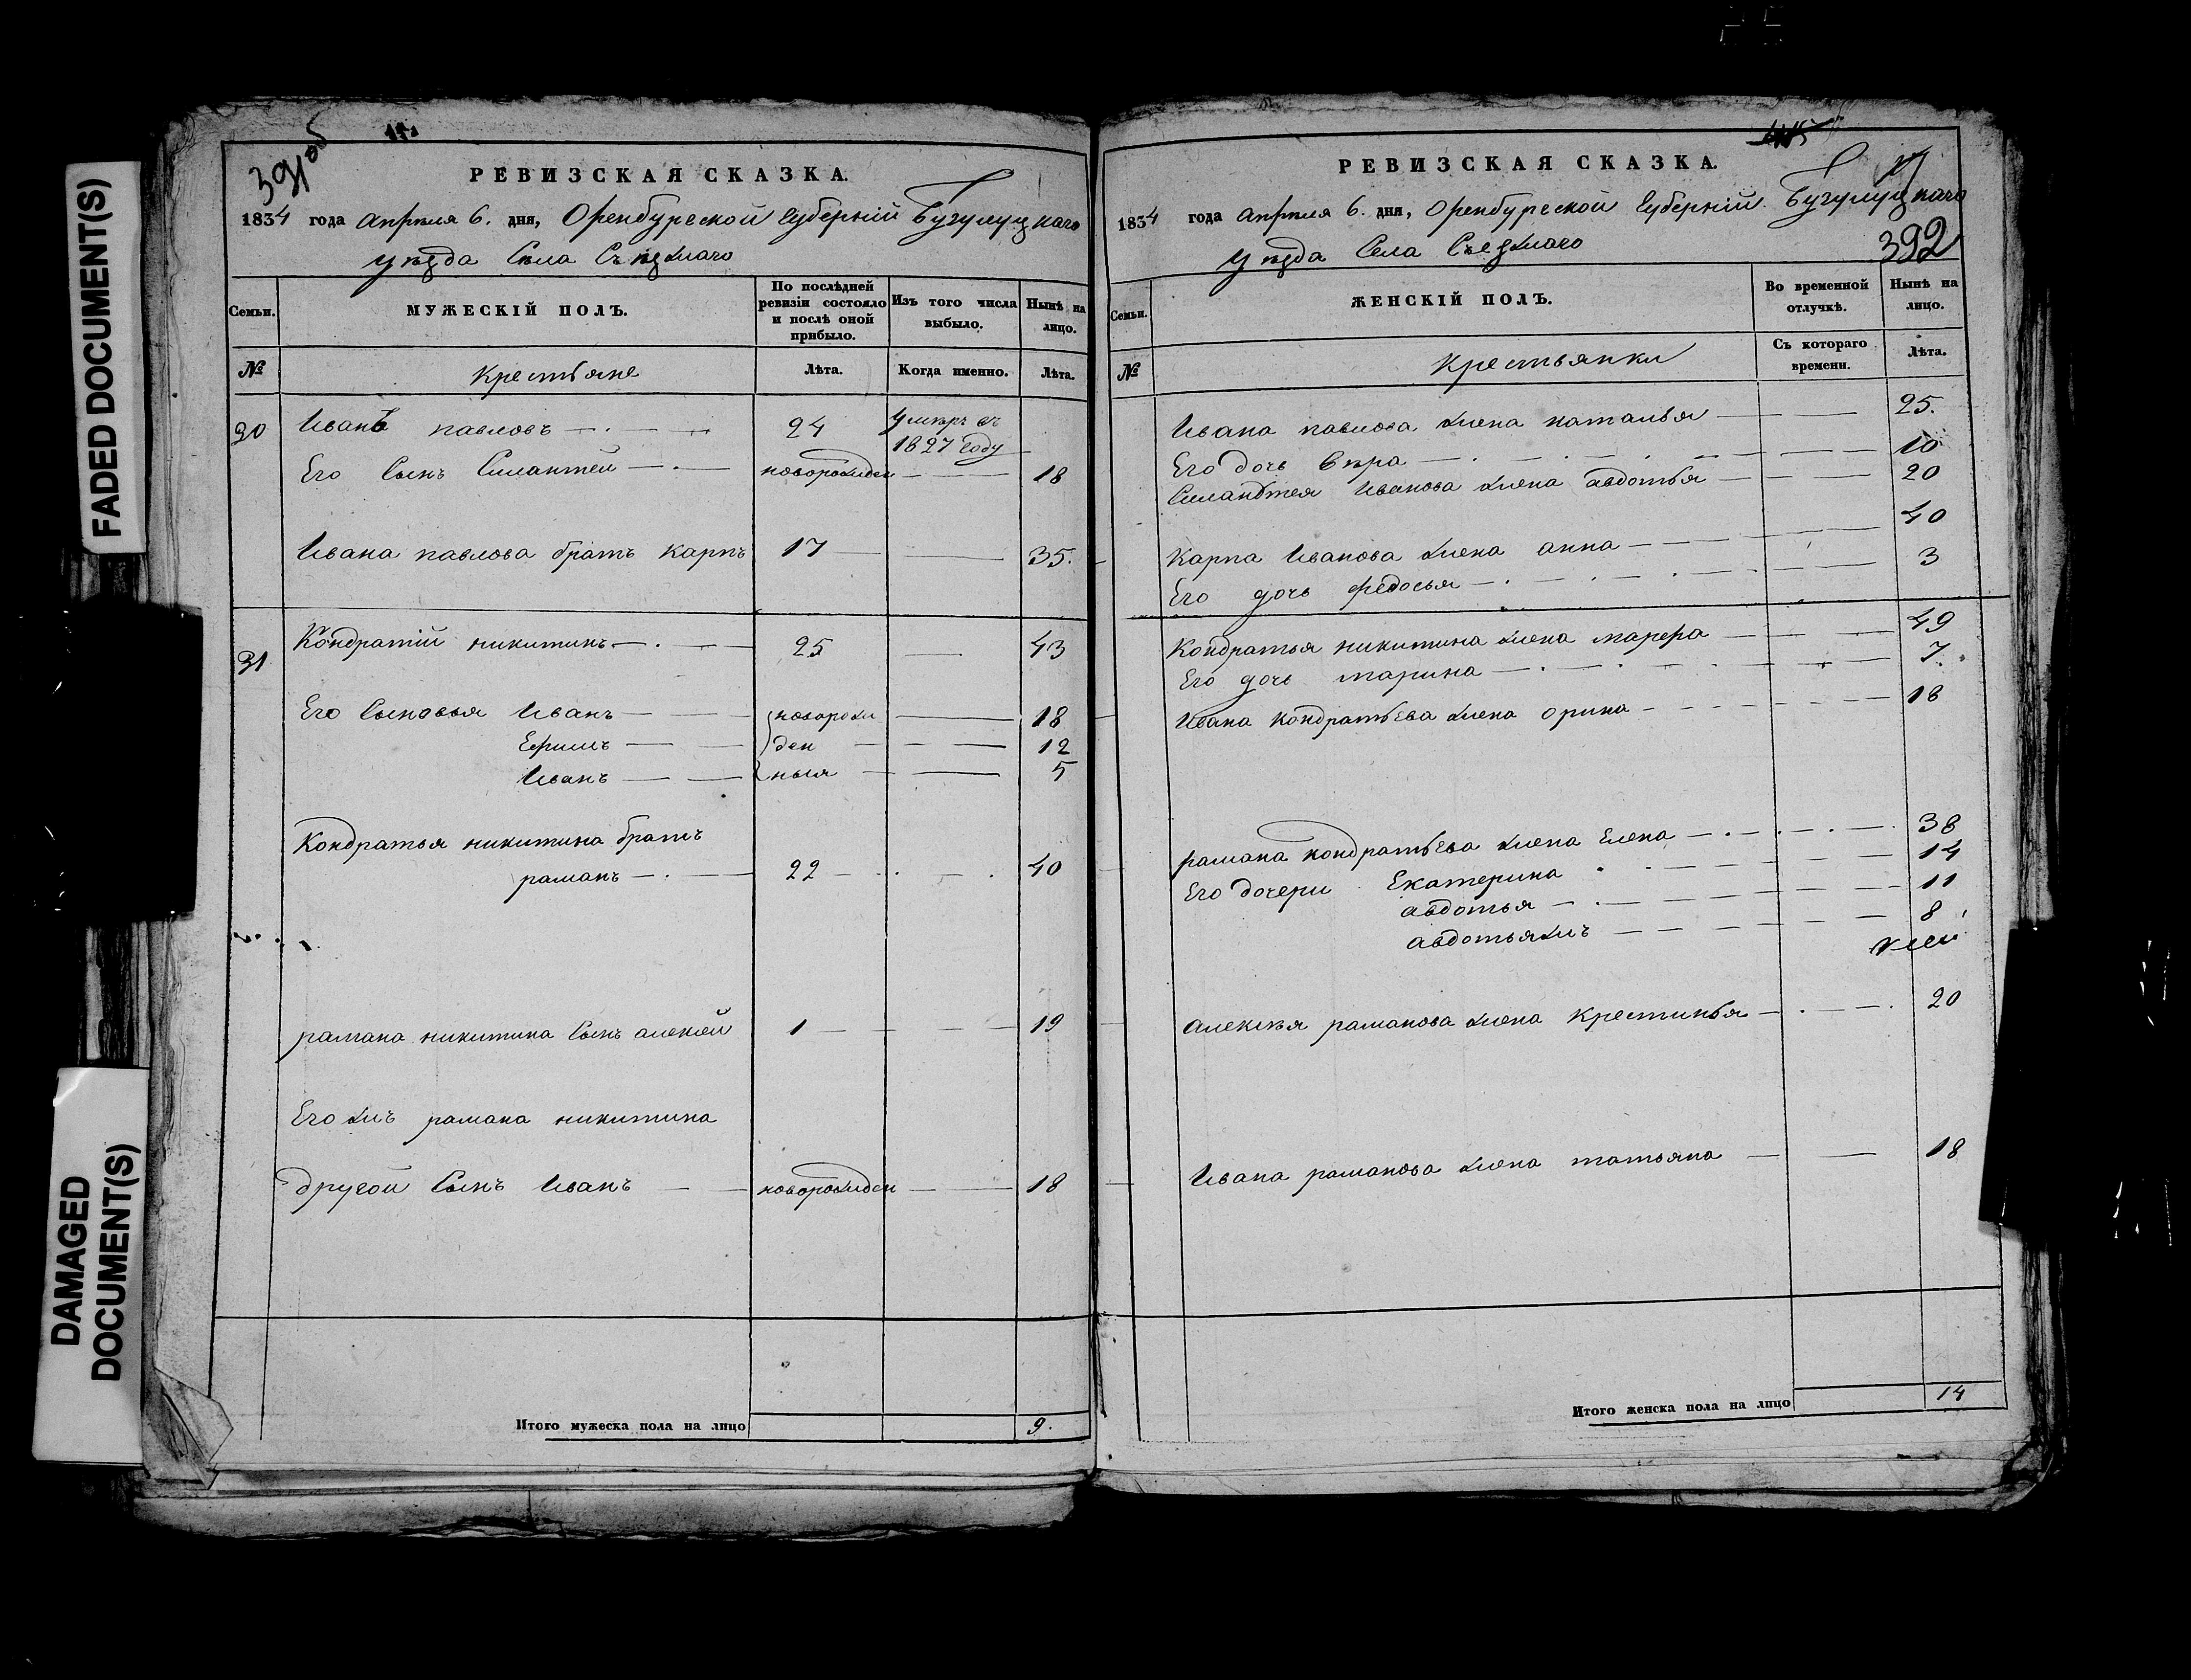 FADED DOCUMENT(S)
DAMAGED
DOCUMENT(S)
391 об
РЕВИЗСКАЯ СКАЗКА.
1834 года апреля 6. дня, Оренбурской губерніи Бугулуцкаго
уезда Села Съезжаго
Семьи. МУЖЕСКІЙ ПОЛЪ. По послѣдней ревизіи состояло и послѣ оной прибыло. Изъ того числа выбыло. Нынѣ на лицо.
№ Крестьяне Лѣта. Когда именно. Лѣта.
30 Иванъ павловъ 24 умеръ въ 1827 году
Его Сынъ Силантей новорожден 18
Ивана павлова братъ карпъ 17 35.
31 Кондратій никитинъ 25 43
Его Сыновья Иванъ новорож 18
Ефимъ ден 12
Иванъ ныя 5
Кондратья никитина братъ
раманъ 22 40
рамана никитина Сынъ алексей 1 19
Его жъ рамана никитина
другой Сынъ Иванъ новорожден 18
Итого мужеска пола на лицо 9.
415
РЕВИЗСКАЯ СКАЗКА.
1834 года апреля 6. дня, Оренбурской губерніи Бугулуцкаго
392
уезда Села Съезжаго
Семьи. ЖЕНСКІЙ ПОЛЪ. Во временной отлучкѣ. Нынѣ на лицо.
№ крестьянки Съ котораго времени. Лѣта.
Ивана павлова жена наталья 25.
Его дочь вера 10
Силантея Иванова жена авдотья 20
Карпа Иванова жена анна 40
Его дочь федосья 3
Кондратья никитина жена марфа 49
Его дочь марина 7.
Ивана кондратьева жена орина 18
рамана кондратьева жена Елена 38
Его дочери Екатерина 14
авдотья 11
авдотьяжъ 8
Алексея раманова жена крестинья 20
Ивана раманова жена татьяна 18
Итого женска пола на лицо 14